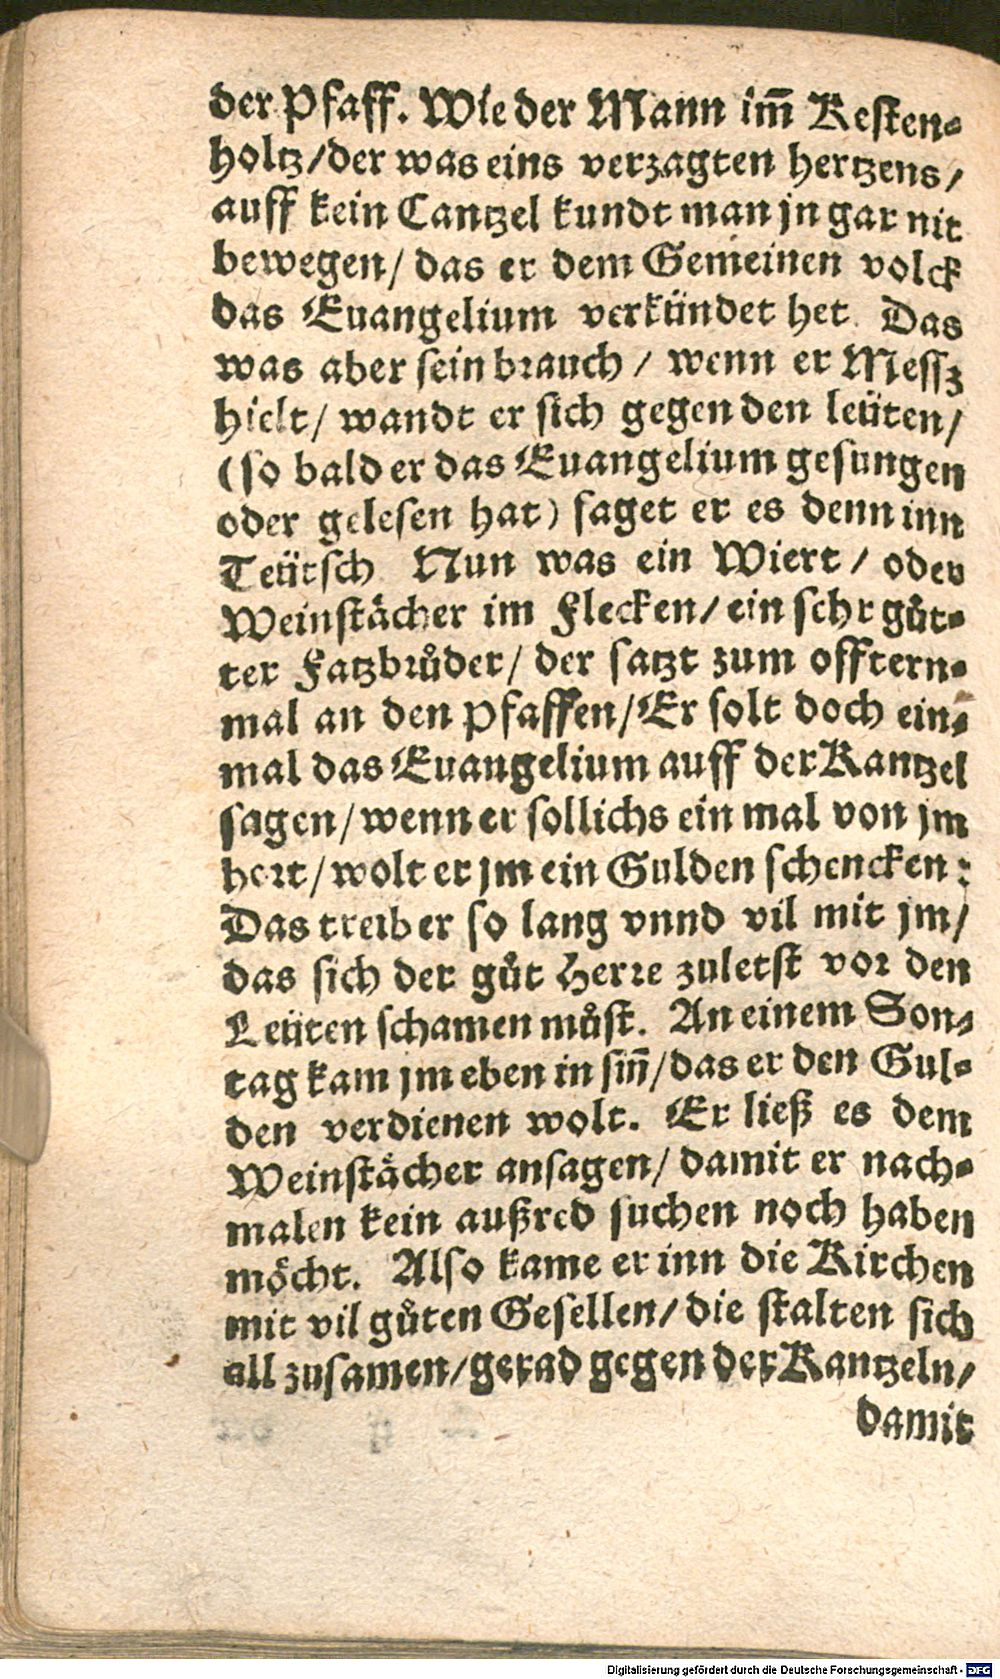 der Pfaff. Wie der Mann im̃ Kesten⸗
holtz/der was eins verzagten hertzens/
auff kein Cantzel kundt man jn gar nit
bewegen/ das er dem Gemeinen volck
das Euangelium verkündet het. Das
was aber sein brauch / wenn er Messz
hielt/ wandt er sich gegen den leüten/
(so bald er das Euangelium gesungen
oder gelesen hat) saget er es denn inn
Teütsch. Nun was ein Wiert / oder
Weinstaͤcher im Flecken/ ein sehr guͦt⸗
ter Fatzbruͦder/ der satzt zum offtern⸗
mal an den Pfaffen/Er solt doch ein⸗
mal das Euangelium auff der Kantzel
sagen/wenn er sollichs ein mal von jm
hort/wolt er jm ein Gulden schencken:
Das treib er so lang vnnd vil mit jm/
das sich der guͦt Herre zuletst vor den
Leüten schamen muͦst. An einem Son⸗
tag kam jm eben in siñ/das er den Gul⸗
den verdienen wolt. Er ließ es dem
Weinstaͤcher ansagen/ damit er nach⸗
malen kein außred suchen noch haben
moͤcht. Also kame er inn die Kirchen
mit vil guͦten Gesellen/ die stalten sich
all zusamen/gerad gegen der Kantzeln/
damit
Digitalisierung gefördert durch die Deutsche Forschungsgemeinschaft - DFG